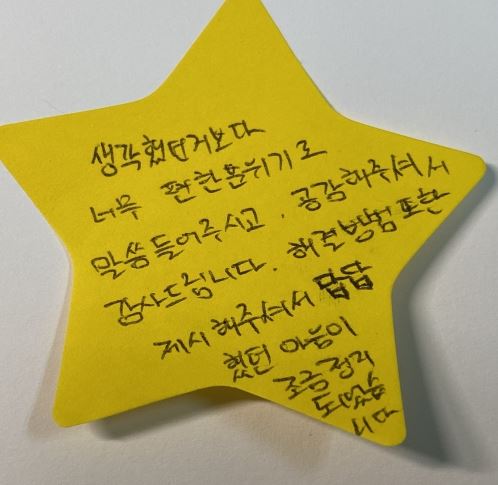 생각했던거보다
너무 편한분위기로
말씀들어주시고, 공감해주셔서
감사드립니다. 해결방법또한
제시해주셔서 답답
했던 마음이
조금정리
되었습
니다